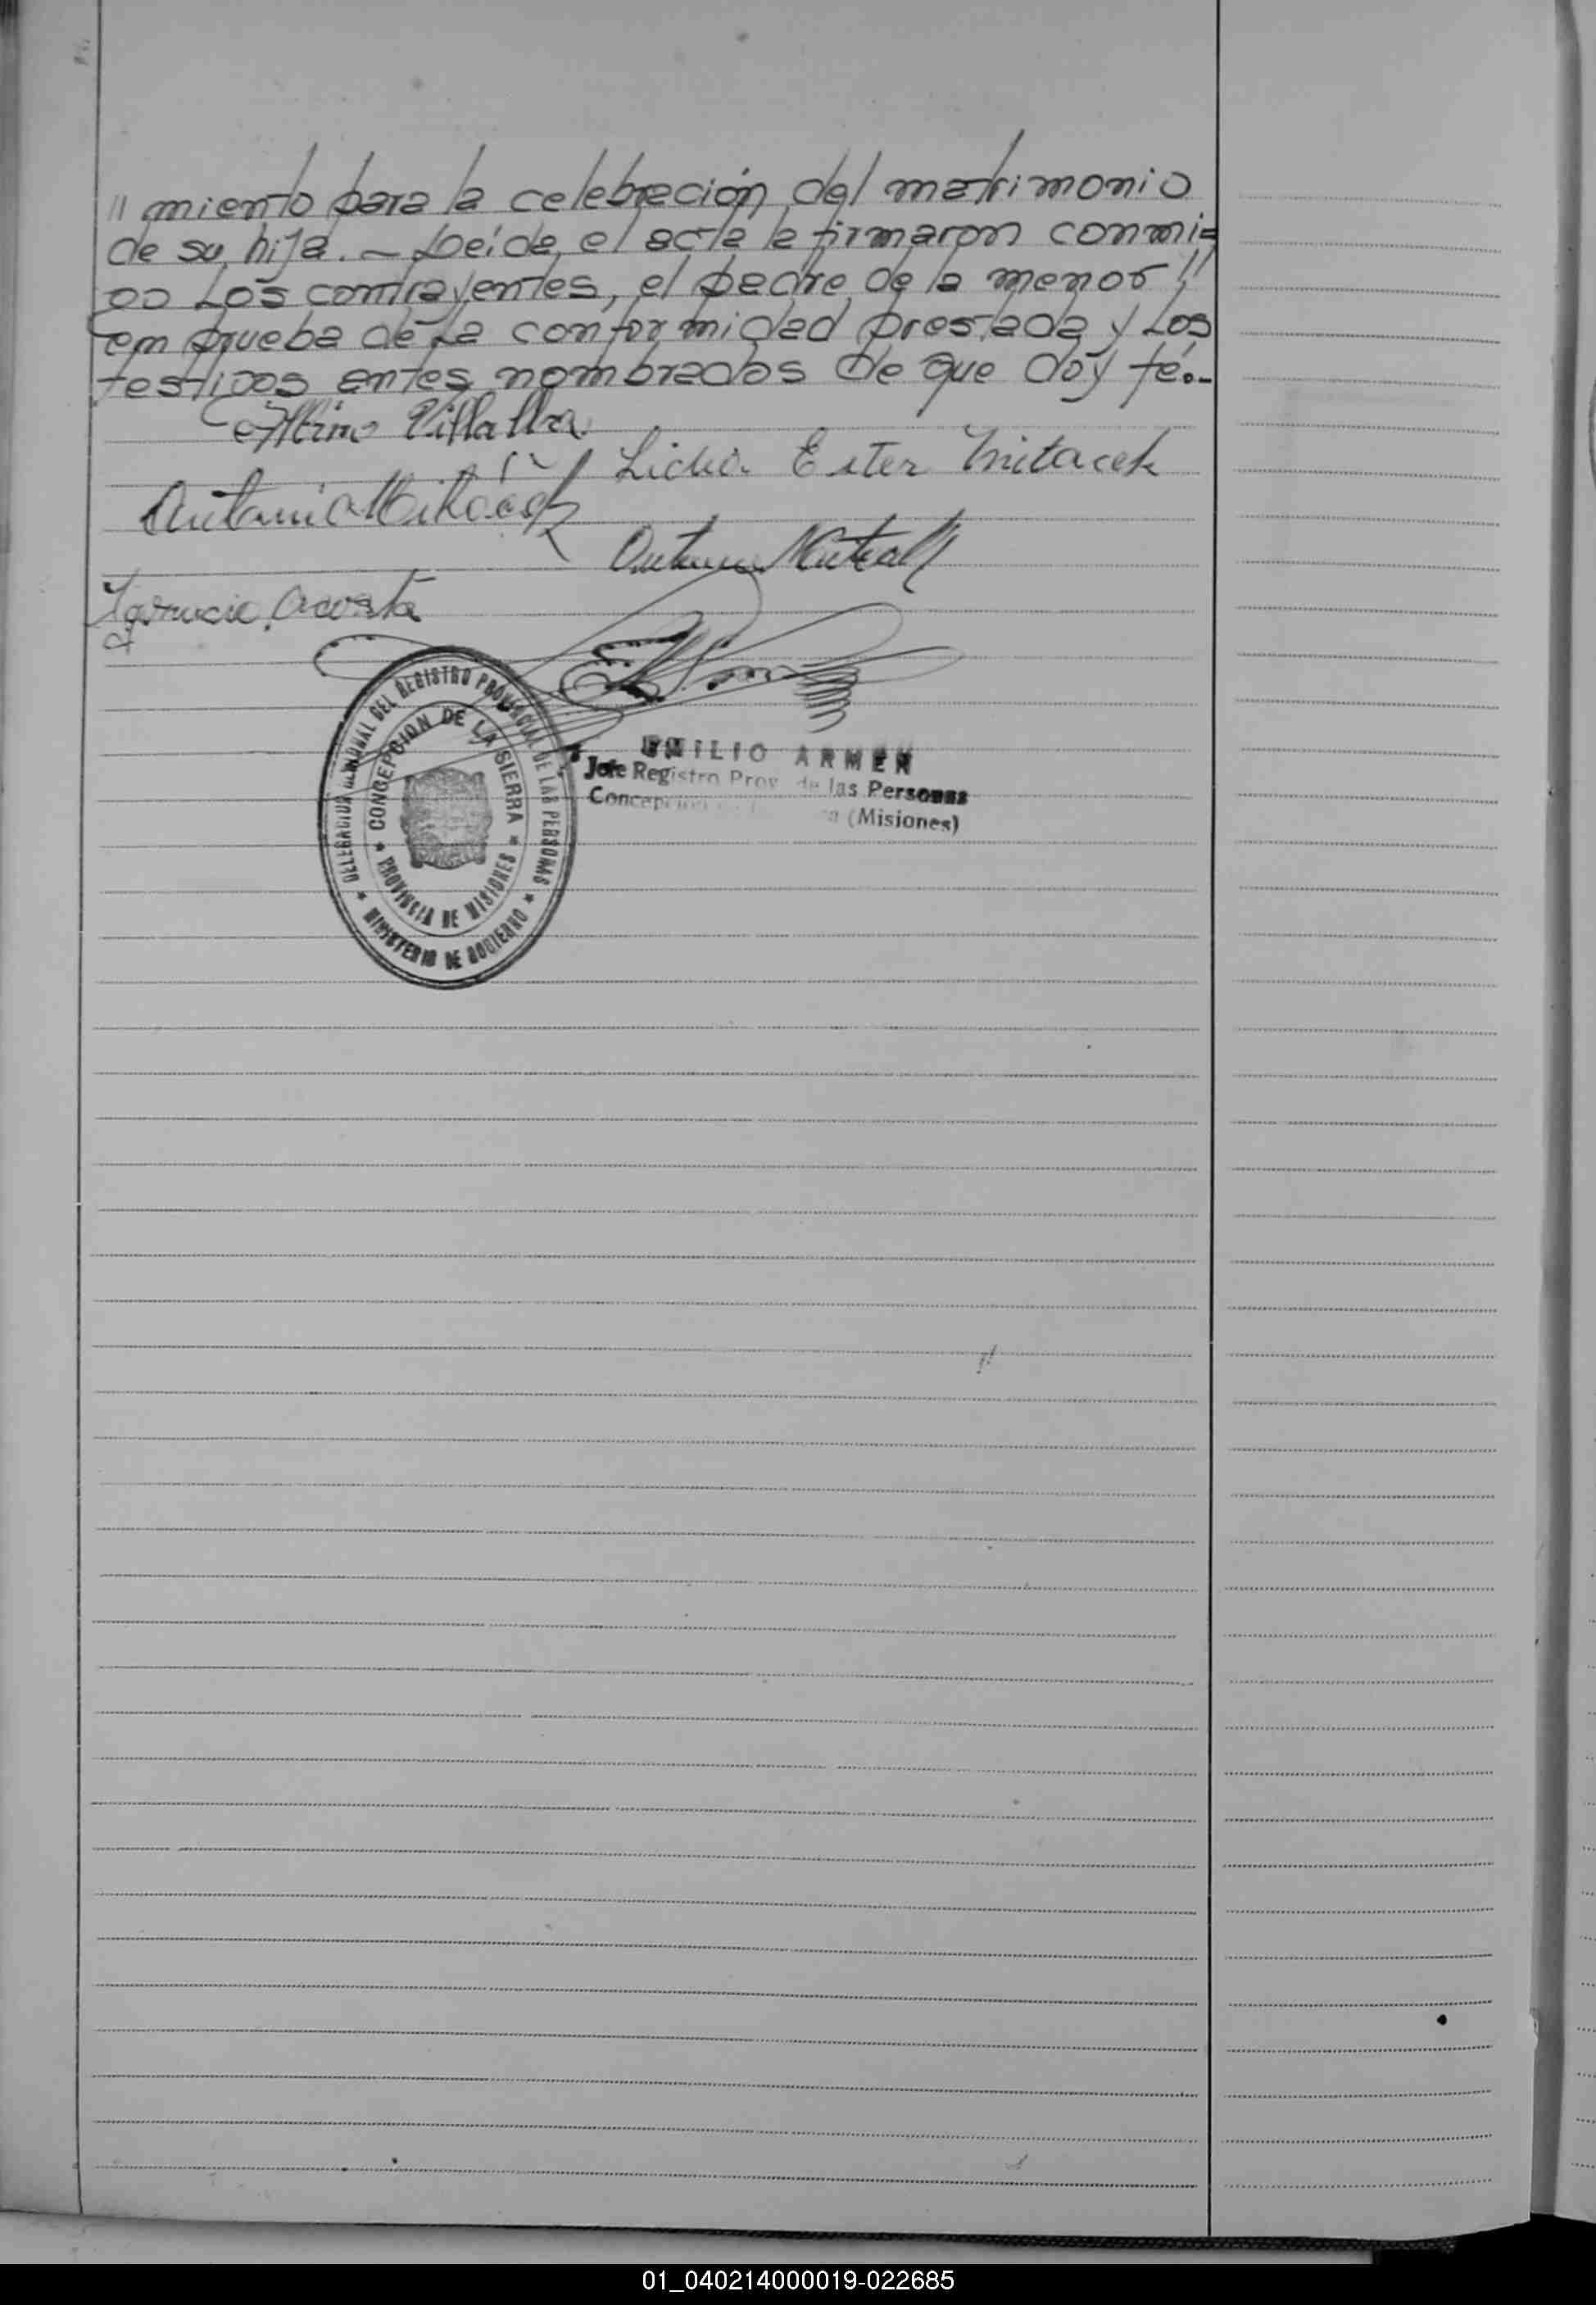 // miento para la celebración del matrimonio
de su hija. — Leída el acta la firmaron conmi=
go Los contrayentes, el padre de la menor //
en prueba de La conformidad prestada y Los
testigos antes nombrados de que doy fé.-
Albino Villalba
Lidia Ester
Antonio
Antonio
Ignacio Acosta
DELEGACION SECCIONAL DEL REGISTRO PROVINCIAL DE LAS PERSONAS
CONCEPCION DE LA SIERRA
PROVINCIA DE MISIONES
MINISTERIO DE GOBIERNO
EMILIO ARMEN
Jefe Registro Prov. de las Personas
Concepcion (Misiones)
01_040214000019-022685